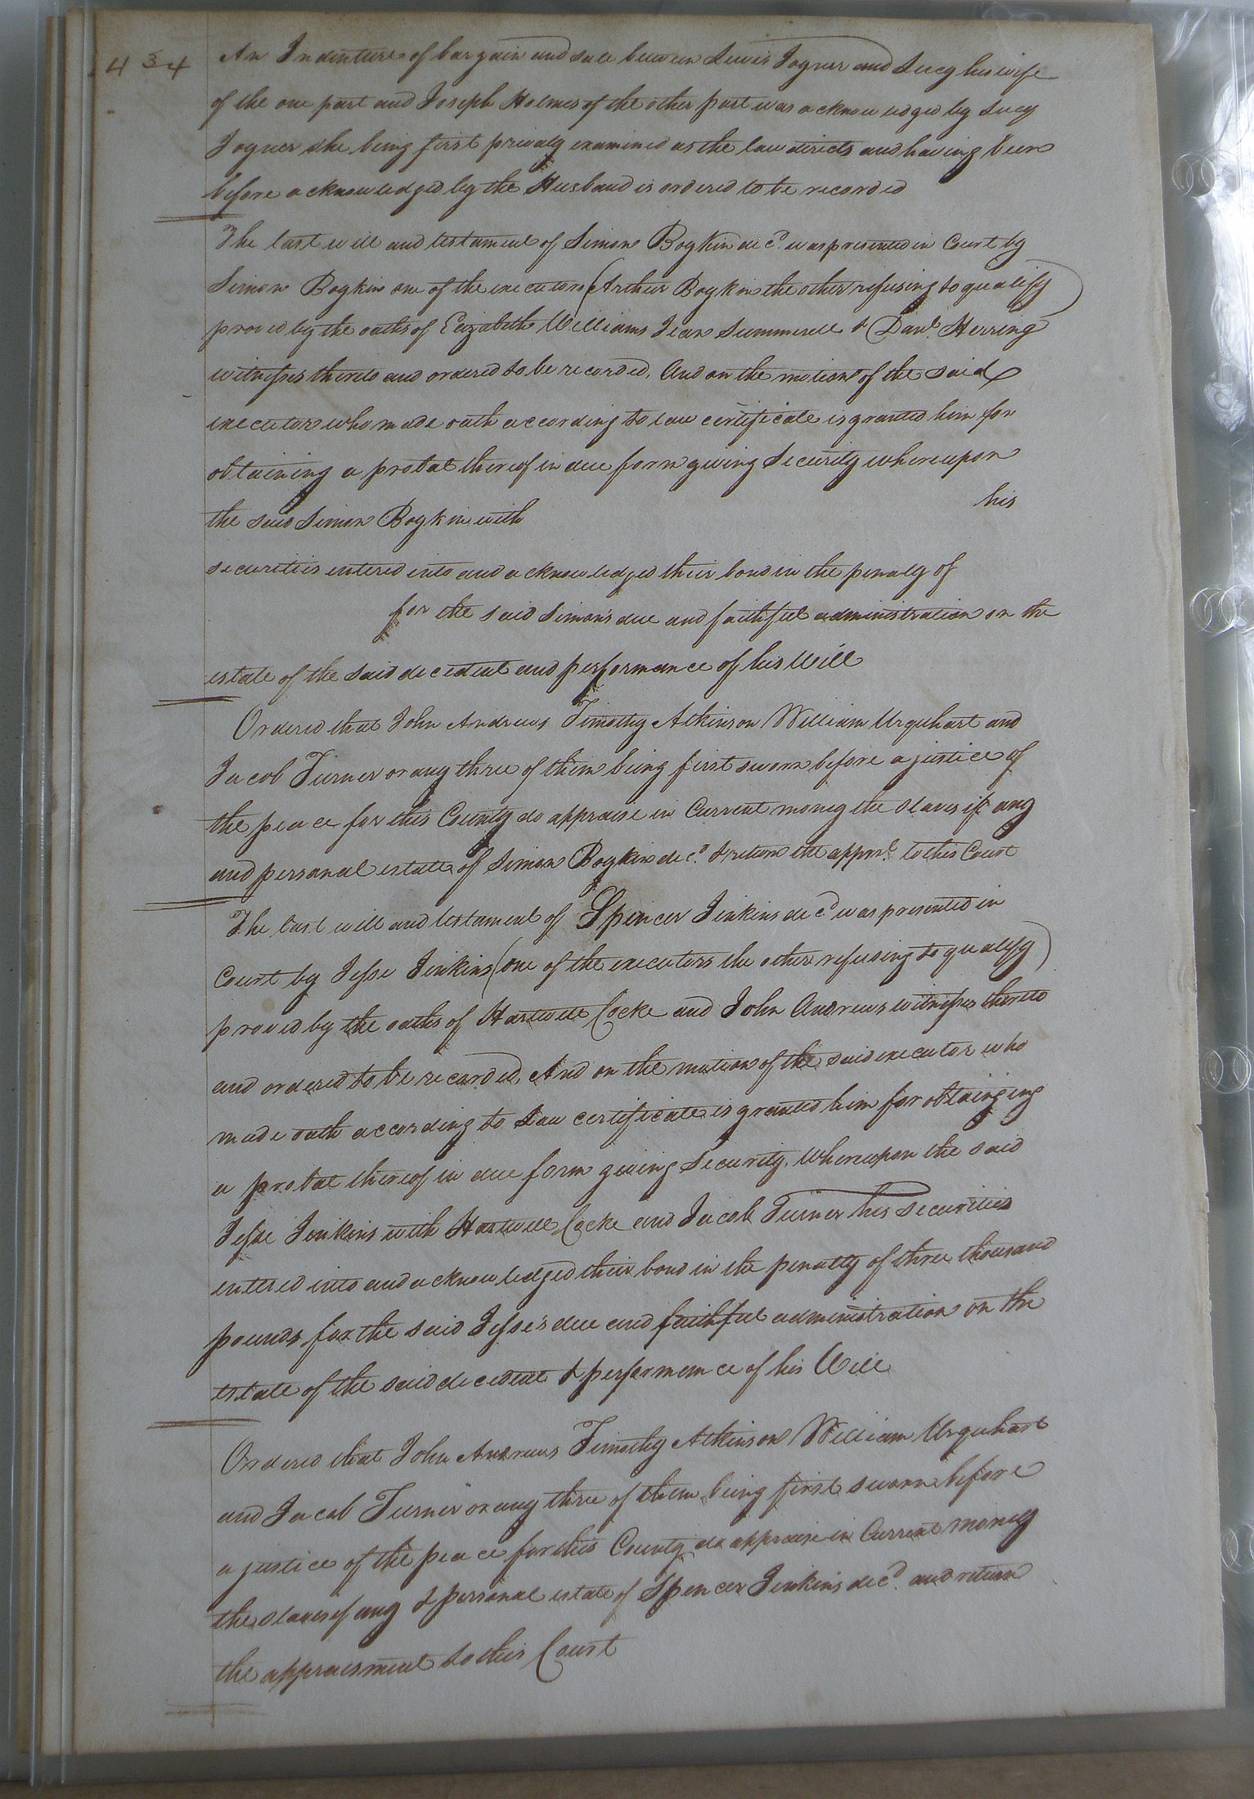 434
An Indenture of bargain and sale between Lewis Joyner and Lucy his wife
of the one part and Joseph Holmes of the other part was acknowledged by Lucy
Joyner she being first privaly examined as the law directs and having been
before acknowledged by the Husband is ordered to be recorded
The last will and testament of Simon Boykin decd. was presented in Court by
Simon Boykin one of the executors (Arthur Boykin the other refusing to qualify)
proved by the oaths of Elizabeth Williams Jean Summerell & Danl. Herring
witnesses thereto and ordered to be recorded. And on the motion of the said
executor who made oath according to law certificate is granted him for
obtaining a probat thereof in due form giving Security whereupon
the said Simon Boykin with his
securities entered into and acknowledged their bond in the penaly of
for the said Simon's due and faithful administration on the
estate of the said decedent and performance of his Will
Ordered that John Andrews Timothy Atkinson William Urquhart and
Jacob Turner or any three of them being first sworn before a justice of
the peace for this County do appraise in Current money the slaves if any
and personal estate of Simon Boykin decd. & return the apprst. to this Court
The last will and testament of Spencer Jenkins decd was presented in
Court by Jesse Jenkins (one of the executors the other refusing to qualify)
proved by the oaths of Hartwell Cocke and John Andrews witnesses thereto
and ordered to be recorded, And on the motion of the said executor who
made oath according to Law certificate is granted him for obtainging
a probat thereof in due form giving Security, Whereupon the said
Jesse Jenkins with Hartwell Cocke and Jacob Turner his securities
entered into and acknowledged their bond in the penatly of three thousand
pounds for the said Jesse's due and faithful administration on the
estate of the said decedent & performance of his Will
Ordered that John Andrews Timothy Atkinson William Urquhart
and Jacob Turner or any three of them being first sworn before
a justice of the peace for this County do appraise in Current money
the slaves if any & personal estate of Spencer Jenkins decd. and return
the appraisment to this Court